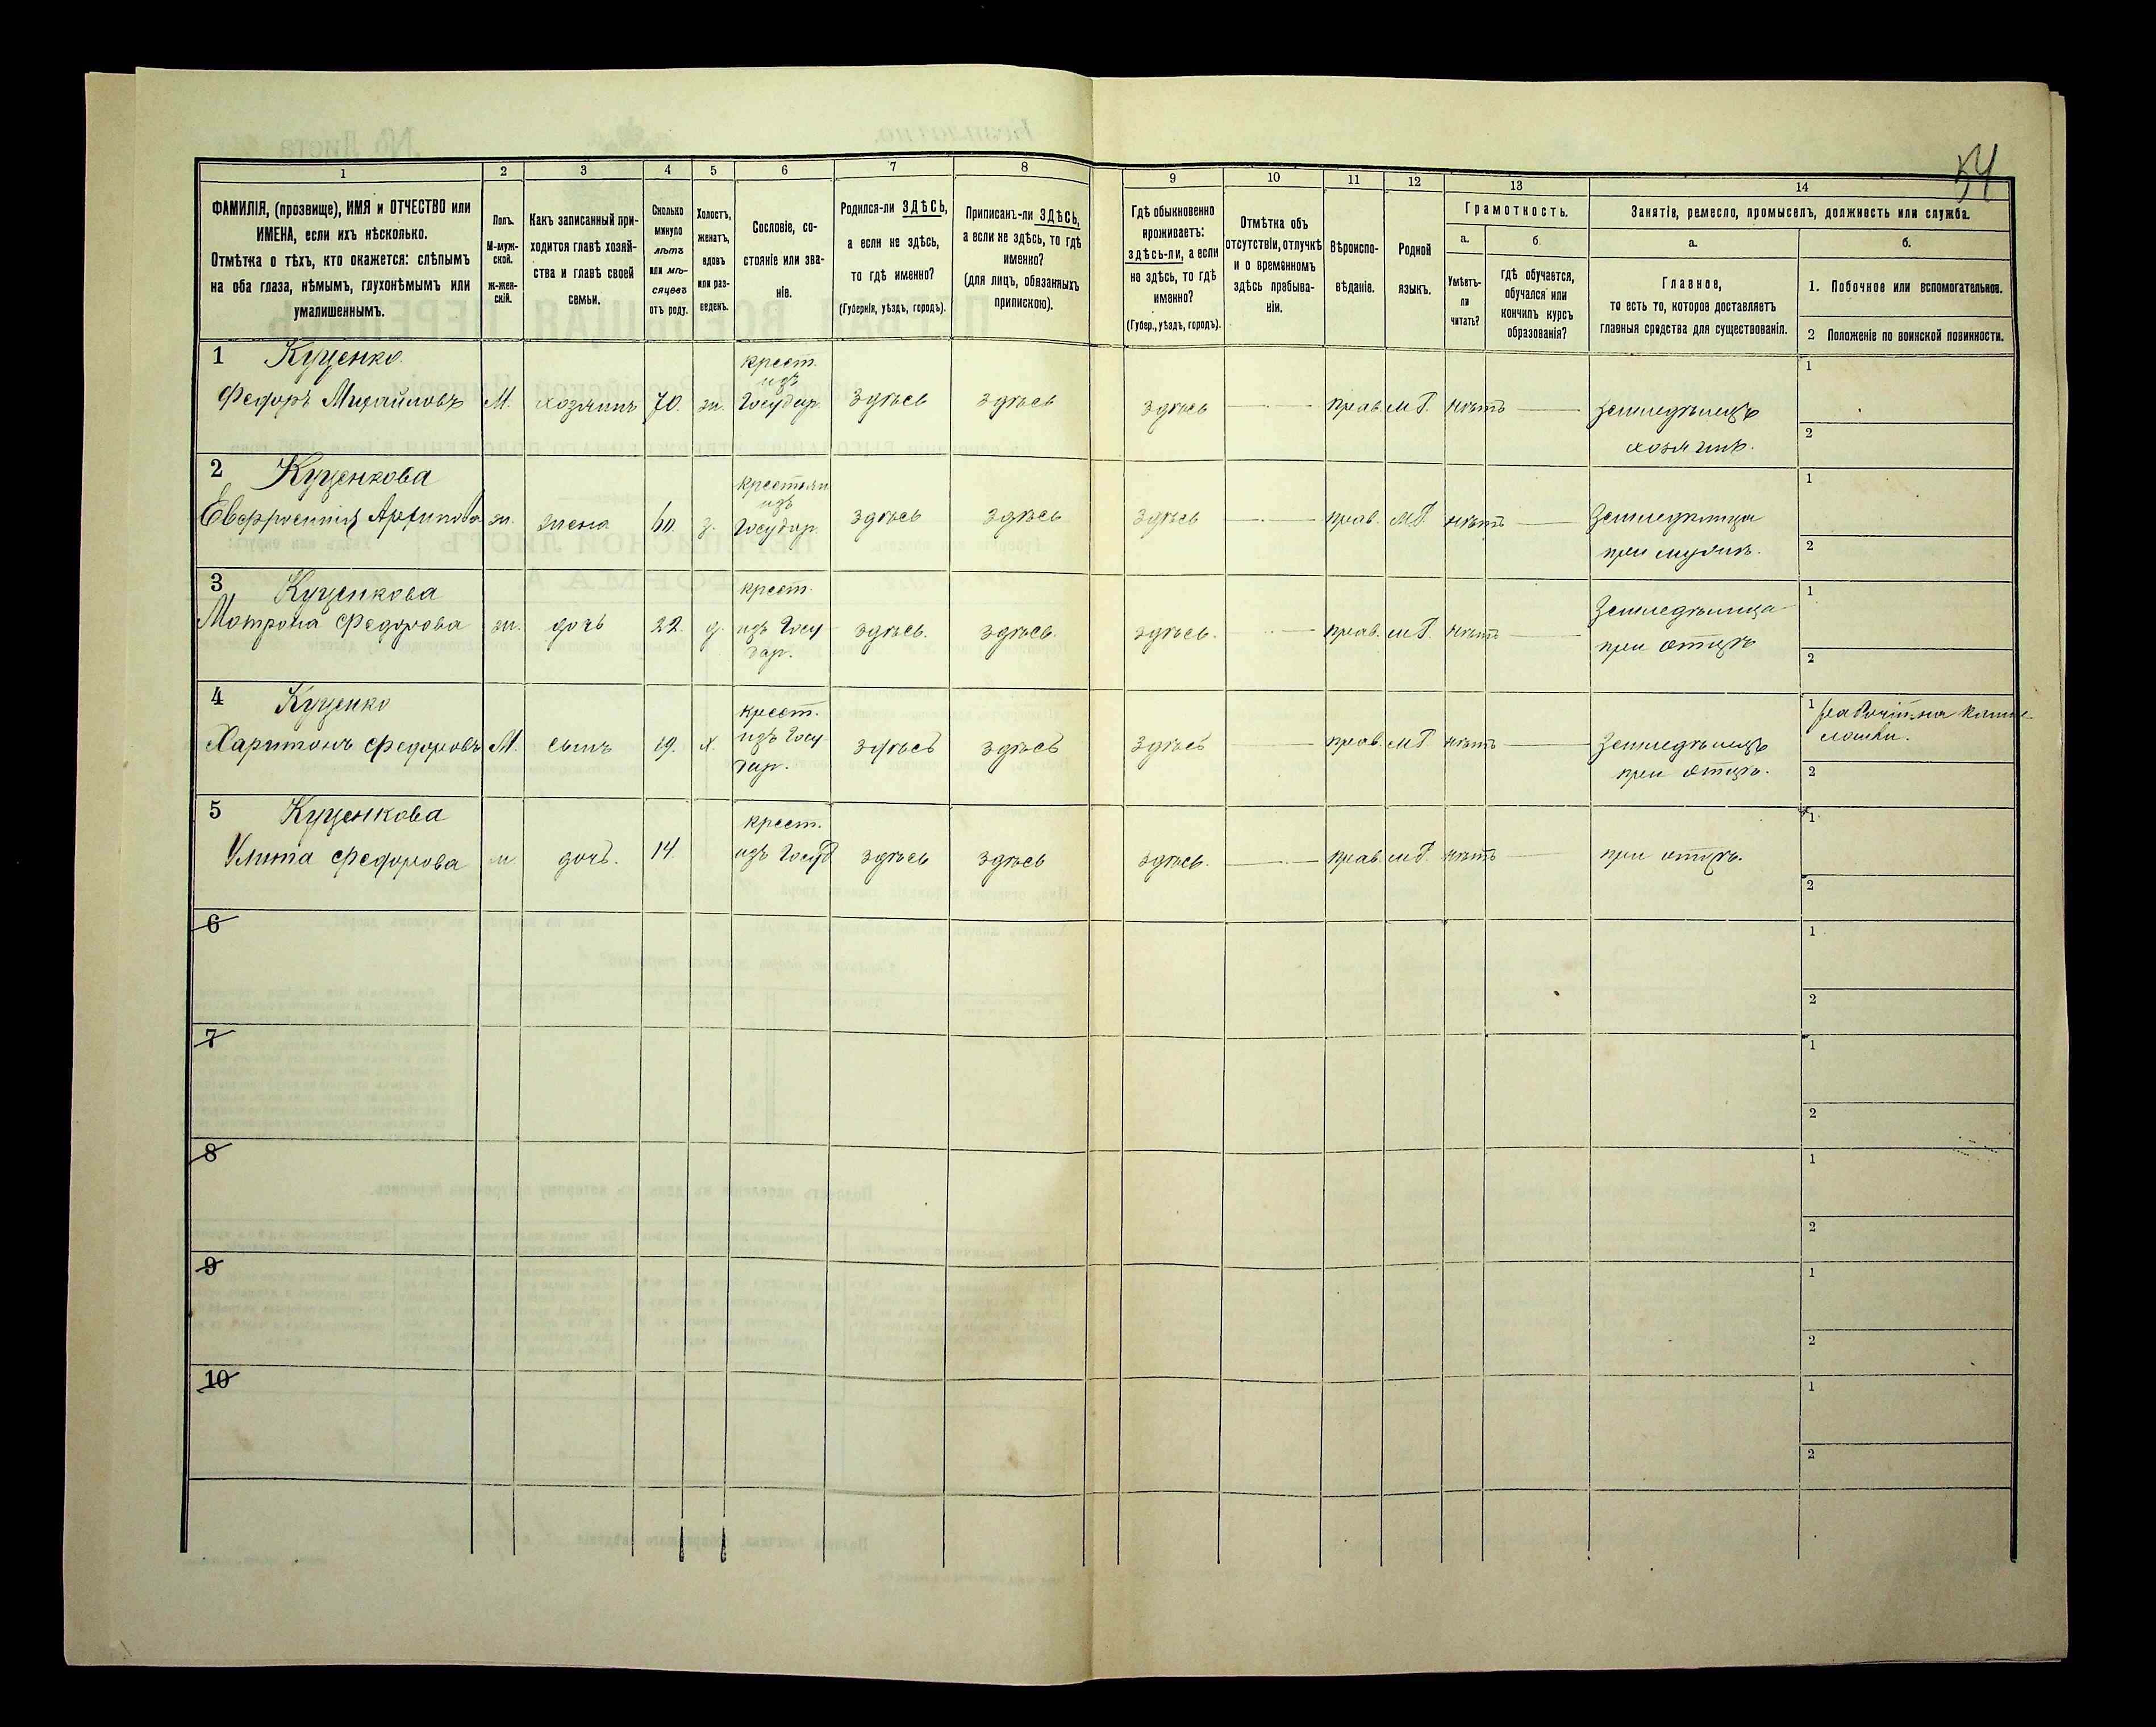 54
1 2 3 4 5 6 7 8 9 10 11 12 13 14
ФАМИЛІЯ, (прозвище), ИМЯ и ОТЧЕСТВО или
ИМЕНА, если ихъ нѣсколько.
Отмѣтка о тѣхъ, кто окажется: слѣпымъ
на оба глаза, нѣмымъ, глухонѣмымъ или
умалишеннымъ.
Полъ.
М-муж-
ской.
Ж-жен-
скій.
Какъ записанный при-
ходится главѣ хозяй-
ства и главѣ своей
семьи.
Сколько
минуло
лѣтъ
или мѣ-
сяцевъ
отъ роду.
Холостъ,
женатъ,
вдовъ
или раз-
веденъ.
Сословіе, со-
стояніе или зва-
ніе.
Родился-ли ЗДѢСЬ,
а если не здѣсь,
то гдѣ именно?
(Губернія, уѣздъ, городъ).
Приписанъ-ли ЗДѢСЬ,
а если не здѣсь, то гдѣ
именно?
(для лицъ, обязанныхъ
припискою).
Гдѣ обыкновенно
проживаетъ:
здѣсь-ли, а если
не здѣсь, то гдѣ
именно?
(Губер., уѣздъ, городъ).
Отмѣтка объ
отсутствіи, отлучкѣ
и о временномъ
здѣсь пребыва-
ніи.
Вѣроиспо-
вѣданіе.
Родной
языкъ.
Грамотность.
а.
Умѣетъ-
ли
читать?
б.
гдѣ обучается,
обучался или
кончилъ курсъ
образованія?
Занятіе, ремесло, промыселъ, должность или служба.
а.
Главное,
то есть то, которое доставляетъ
главныя средства для существованія.
б.
1. Побочное или вспомогательное.
2 Положеніе по воинской повинности.
1 Куценко
Федоръ Михайловъ М. хозяинъ 70. ж. крест.
изъ
Государ. здѣсь здѣсь здѣсь — прав. М Р. нѣтъ — земледѣлецъ
хозяинъ.
1
2
2 Куценкова
Евфросинія Архипова ж. жена 60 з. крестьян
изъ
Государ. здѣсь здѣсь здѣсь — прав. М Р. нѣтъ — Земледѣлица
при мужѣ.
1
2
3 Куценкова
Матрона Федорова ж. дочь 22. д. крест.
изъ Госу
дар. здѣсь. здѣсь. здѣсь. — прав. М Р. нѣтъ — Земледѣлица
при отцѣ
1
2
4 Куценко
Харитонъ Федоровъ М. сынъ 19. х. крест.
изъ Госу
дар. здѣсь здѣсь здѣсь — прав. М Р. нѣтъ — Земледѣлецъ
при отцѣ.
1
2
5 Куценкова
Улита Федорова ж. дочь. 14. крест.
изъ Госуд здѣсь здѣсь здѣсь. — прав. М Р. нѣтъ — при отцѣ.
1
2
6
1
2
7
1
2
8
1
2
9
1
2
10
1
2